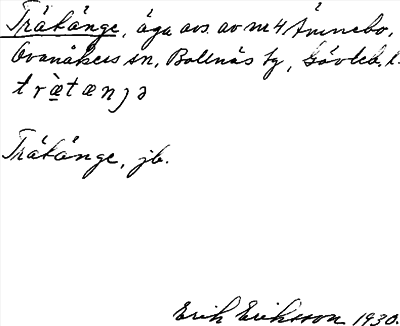 Trätänge, äga avs. av nr 4 Ämnebo,
Ovanåkers sn, Bollnäs tg, Gävleb. l.
træ̀tænȷə
Trätänge, jb.
Erik Eriksson 1930.